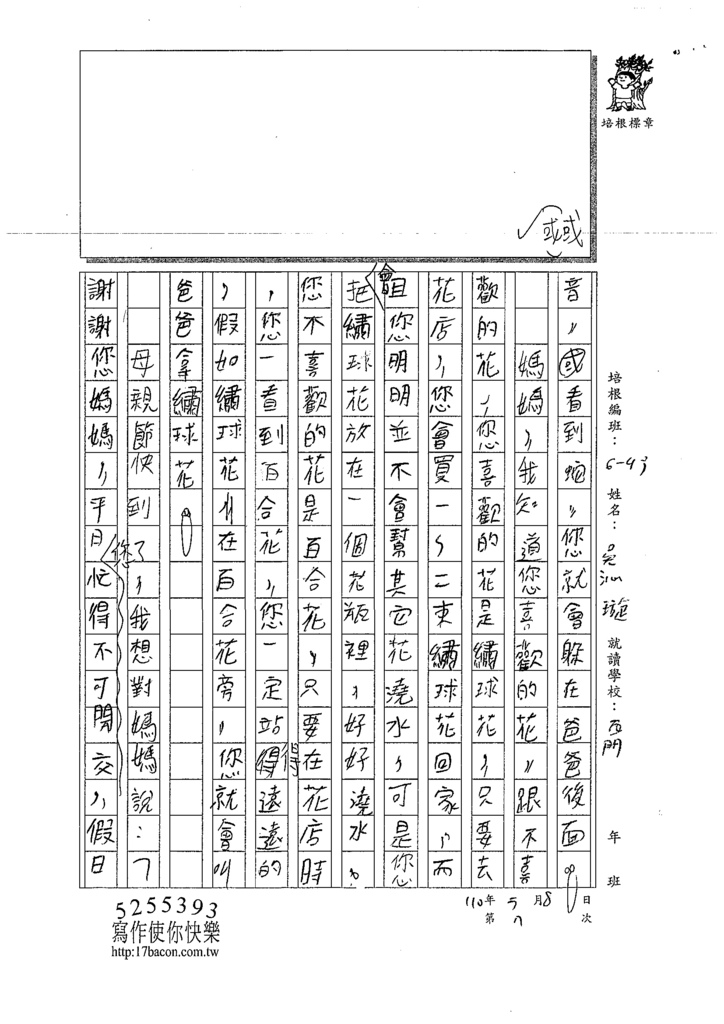 培根標章
或或
培根編班：6-4月 姓名：吳沁璇 就讀學校：西門 年 班
110年 5 月 8 日
第 7 次
音，國看到蜿，您就會躲在爸爸後面。
媽媽，我知道您喜歡的花，跟不喜
歡的花，您喜歡的花是繡球花，只要去
花店，您會買一、二束繡球花回家，而
且您明明並不會幫其它花澆水，可是您
會把繡球花放在一個花瓶裡，好好澆水。
您不喜歡的花是百合花，只要在花店時
，您一看到百合花，您一定站得得遠遠的
，假如繡球花在百合花旁，您就會叫
爸爸拿繡球花。
母親節快到了，我想對媽媽說：「
謝謝您媽媽，平日您忙得不可開交，假日
5255393
寫作使你快樂
http:17bacon.com.tw